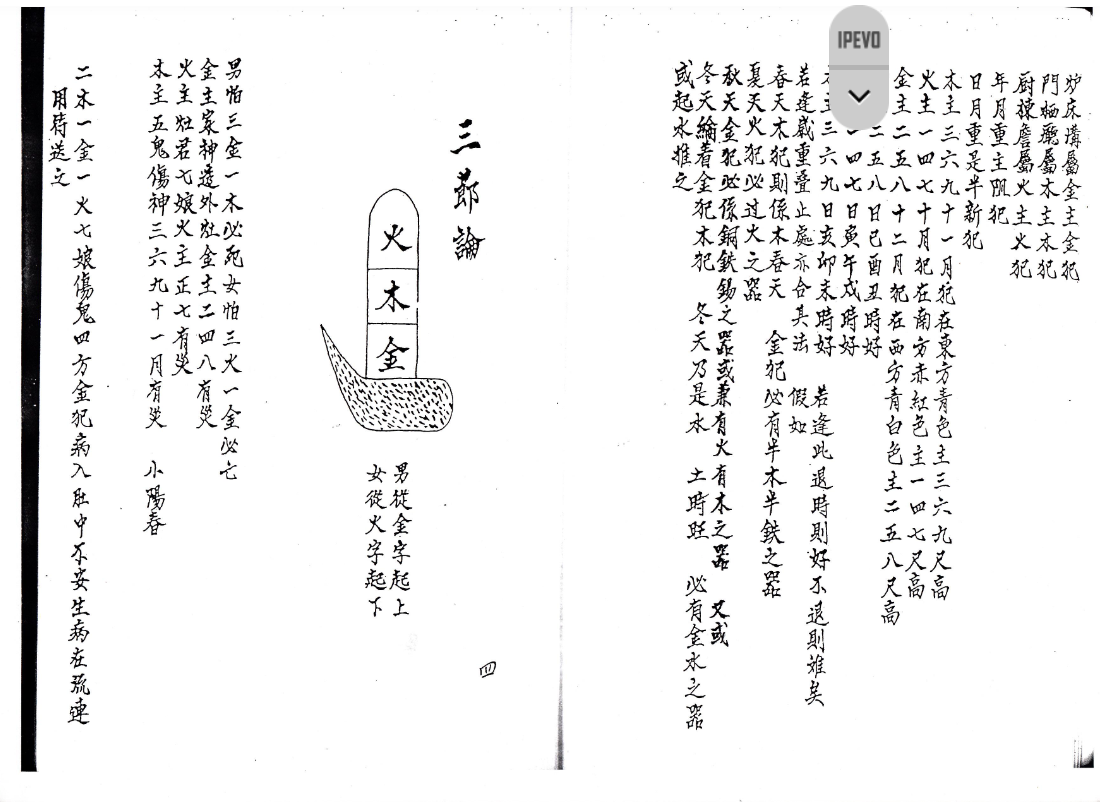 炉床溝屬金主金犯
門栖 屬木主木犯
厨棟詹屬火主火犯
年月重主 犯
日月重是半新犯
木主三六九十一月犯在東方青色主三六九尺高
火主一四七十月犯在南方赤紅色主一四七尺高
金主二五八十二月犯在西方青白色主二五八尺高
二五八日巳酉丑時好
一四七日寅午戍時好
主三六九日亥卯未時好　若逢此退時則好不退則难矣
若逢歲重叠止處亦合其法　假如
春天木犯則係木春天　金犯必有半木半鉄之器
夏天火犯必过火之器
秋天金犯必係銅鉄錫之器或兼有火有木之器　又或
冬天 着金犯木犯　冬天乃是水　土時旺　必有金水之器
或起水推之
IPEVO
三 論
火
木
金
男從金字起上
女從火字起下
四
男怕三金一木必死女怕三火一金必亡
金主家神造外灶金主二四八有災
火主灶君七娘火主正七有災
木主五鬼傷神三六九十一月有災　小陽春
二木一金一火七娘傷鬼四方金犯病入肚中不安生病在流連
用符送之